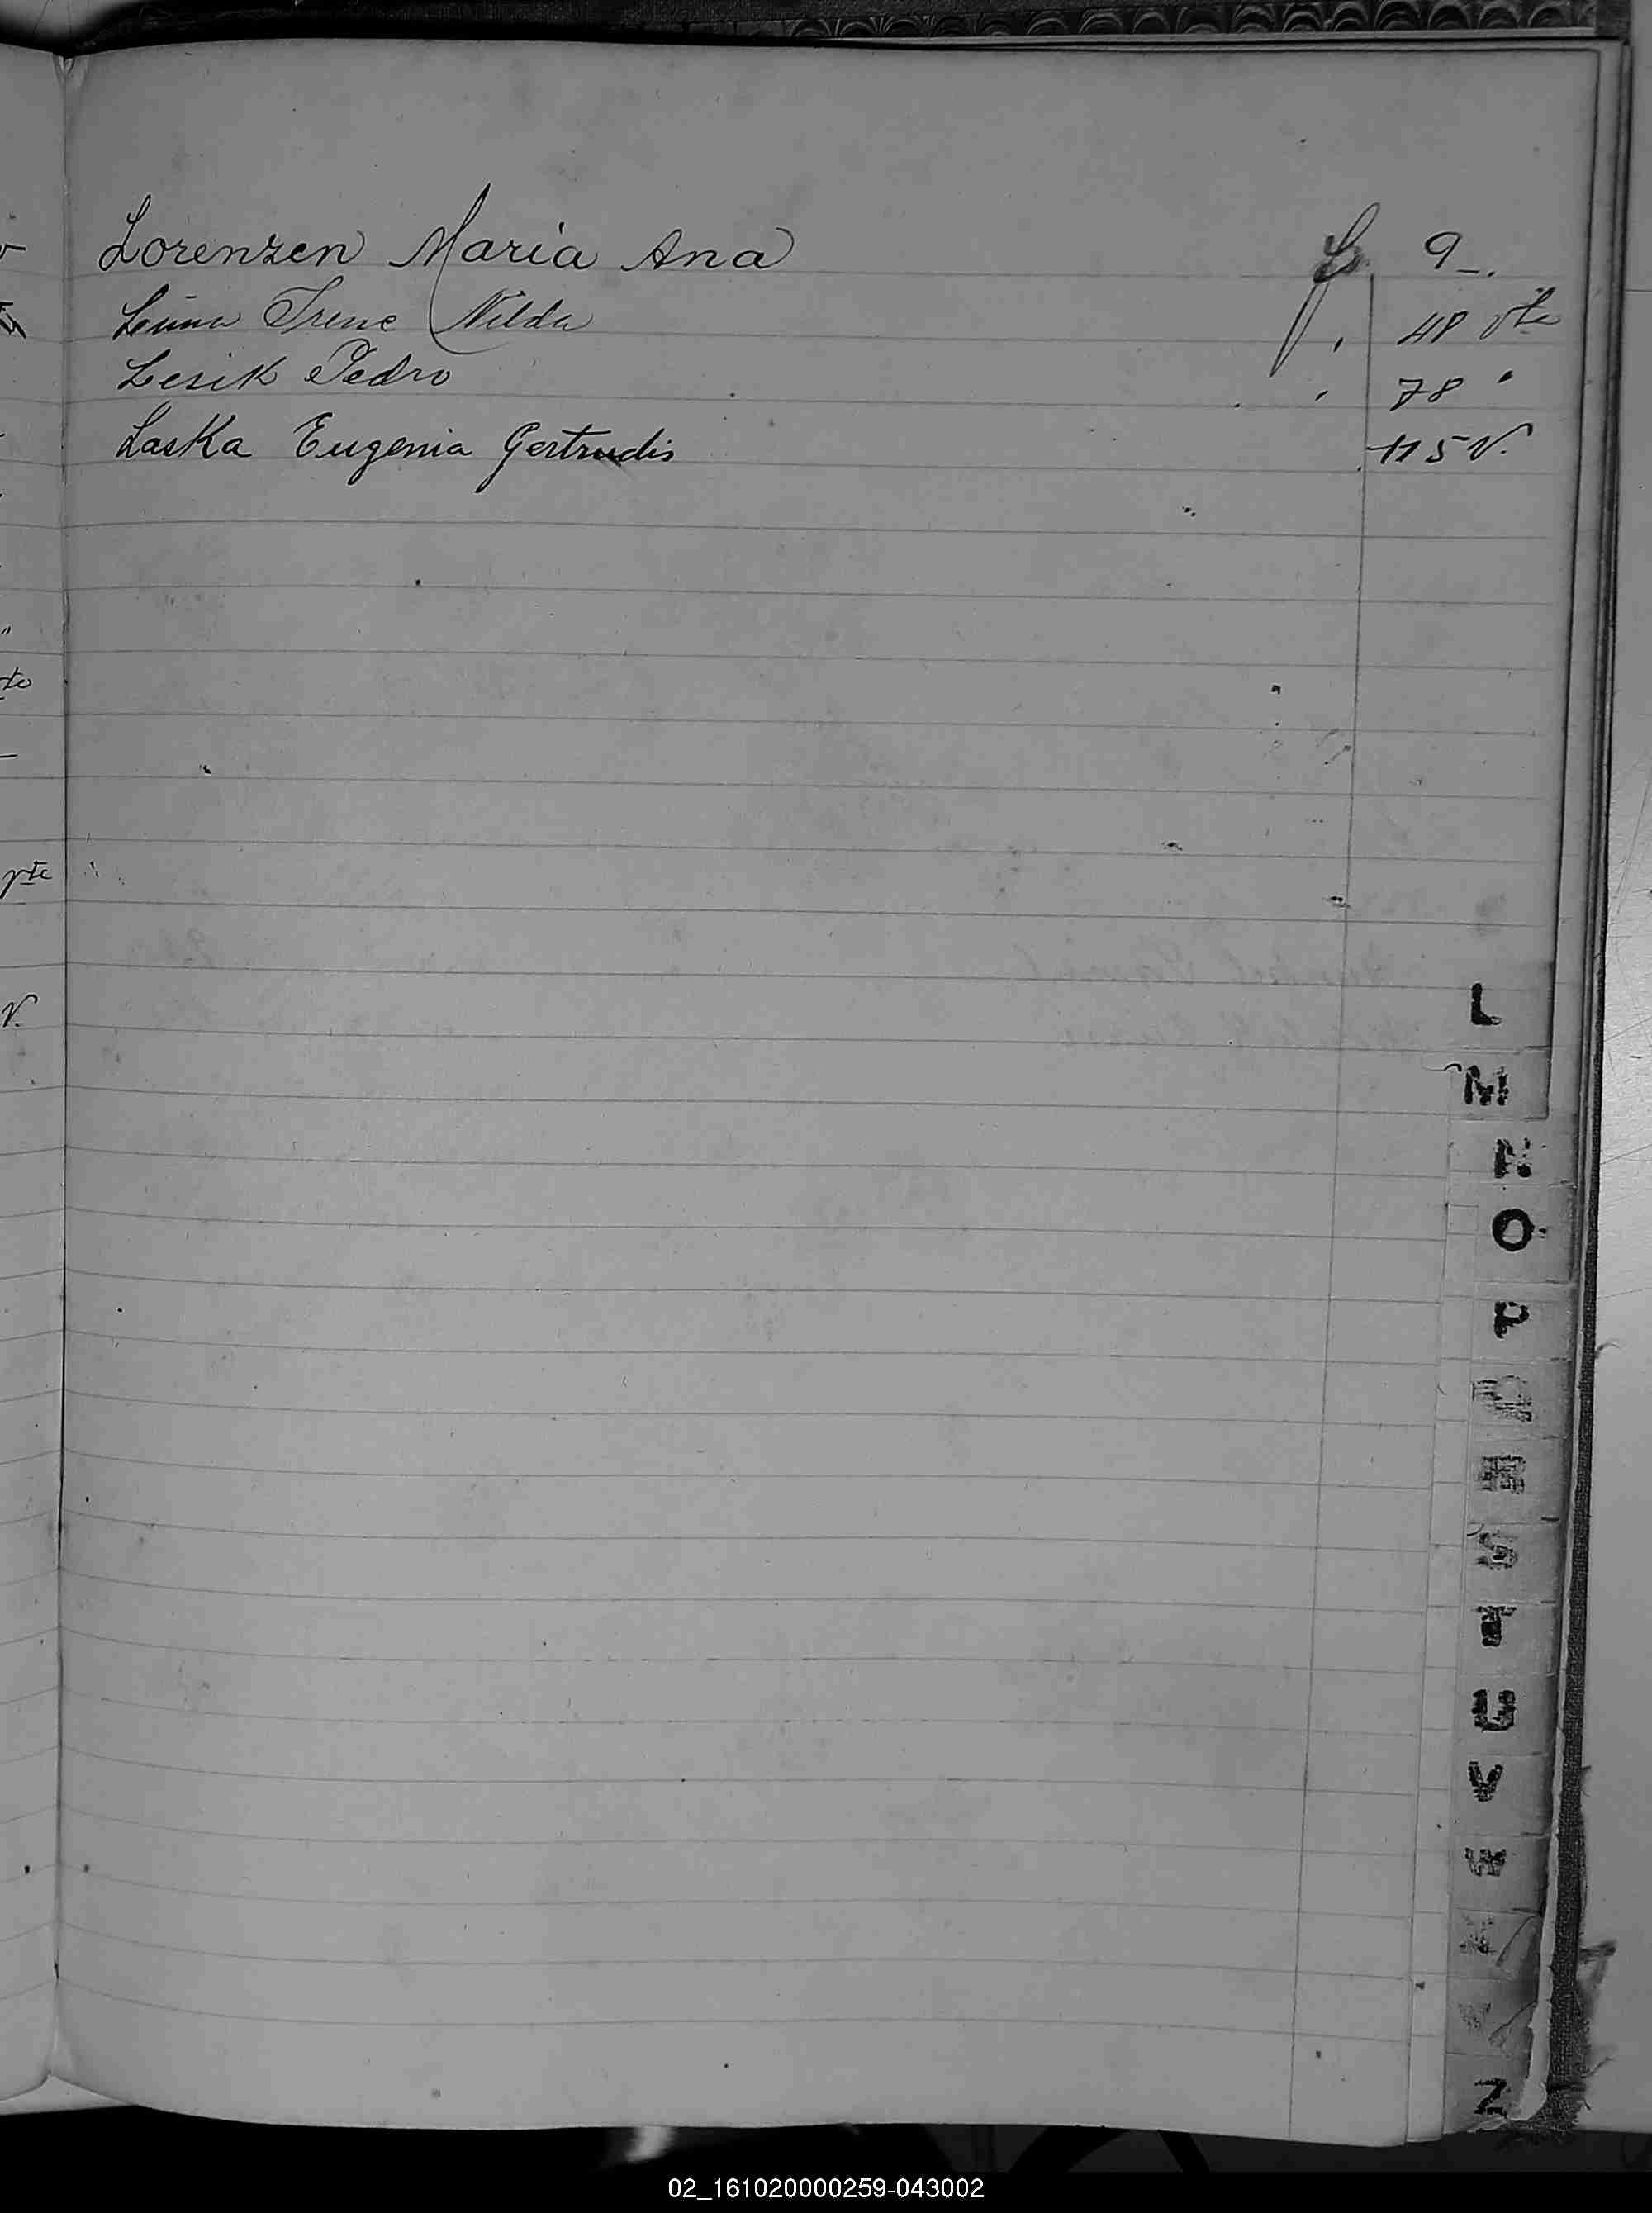 Lorenzen Maria Ana 9-.
Luna Irene Nilda 48 vta
Lesik Pedro 78 "
Laska Eugenia Gertrudis 115 V.
L
M
N
O
P
Q
R
S
T
U
V
W
X
Y
Z
02_161020000259-043002